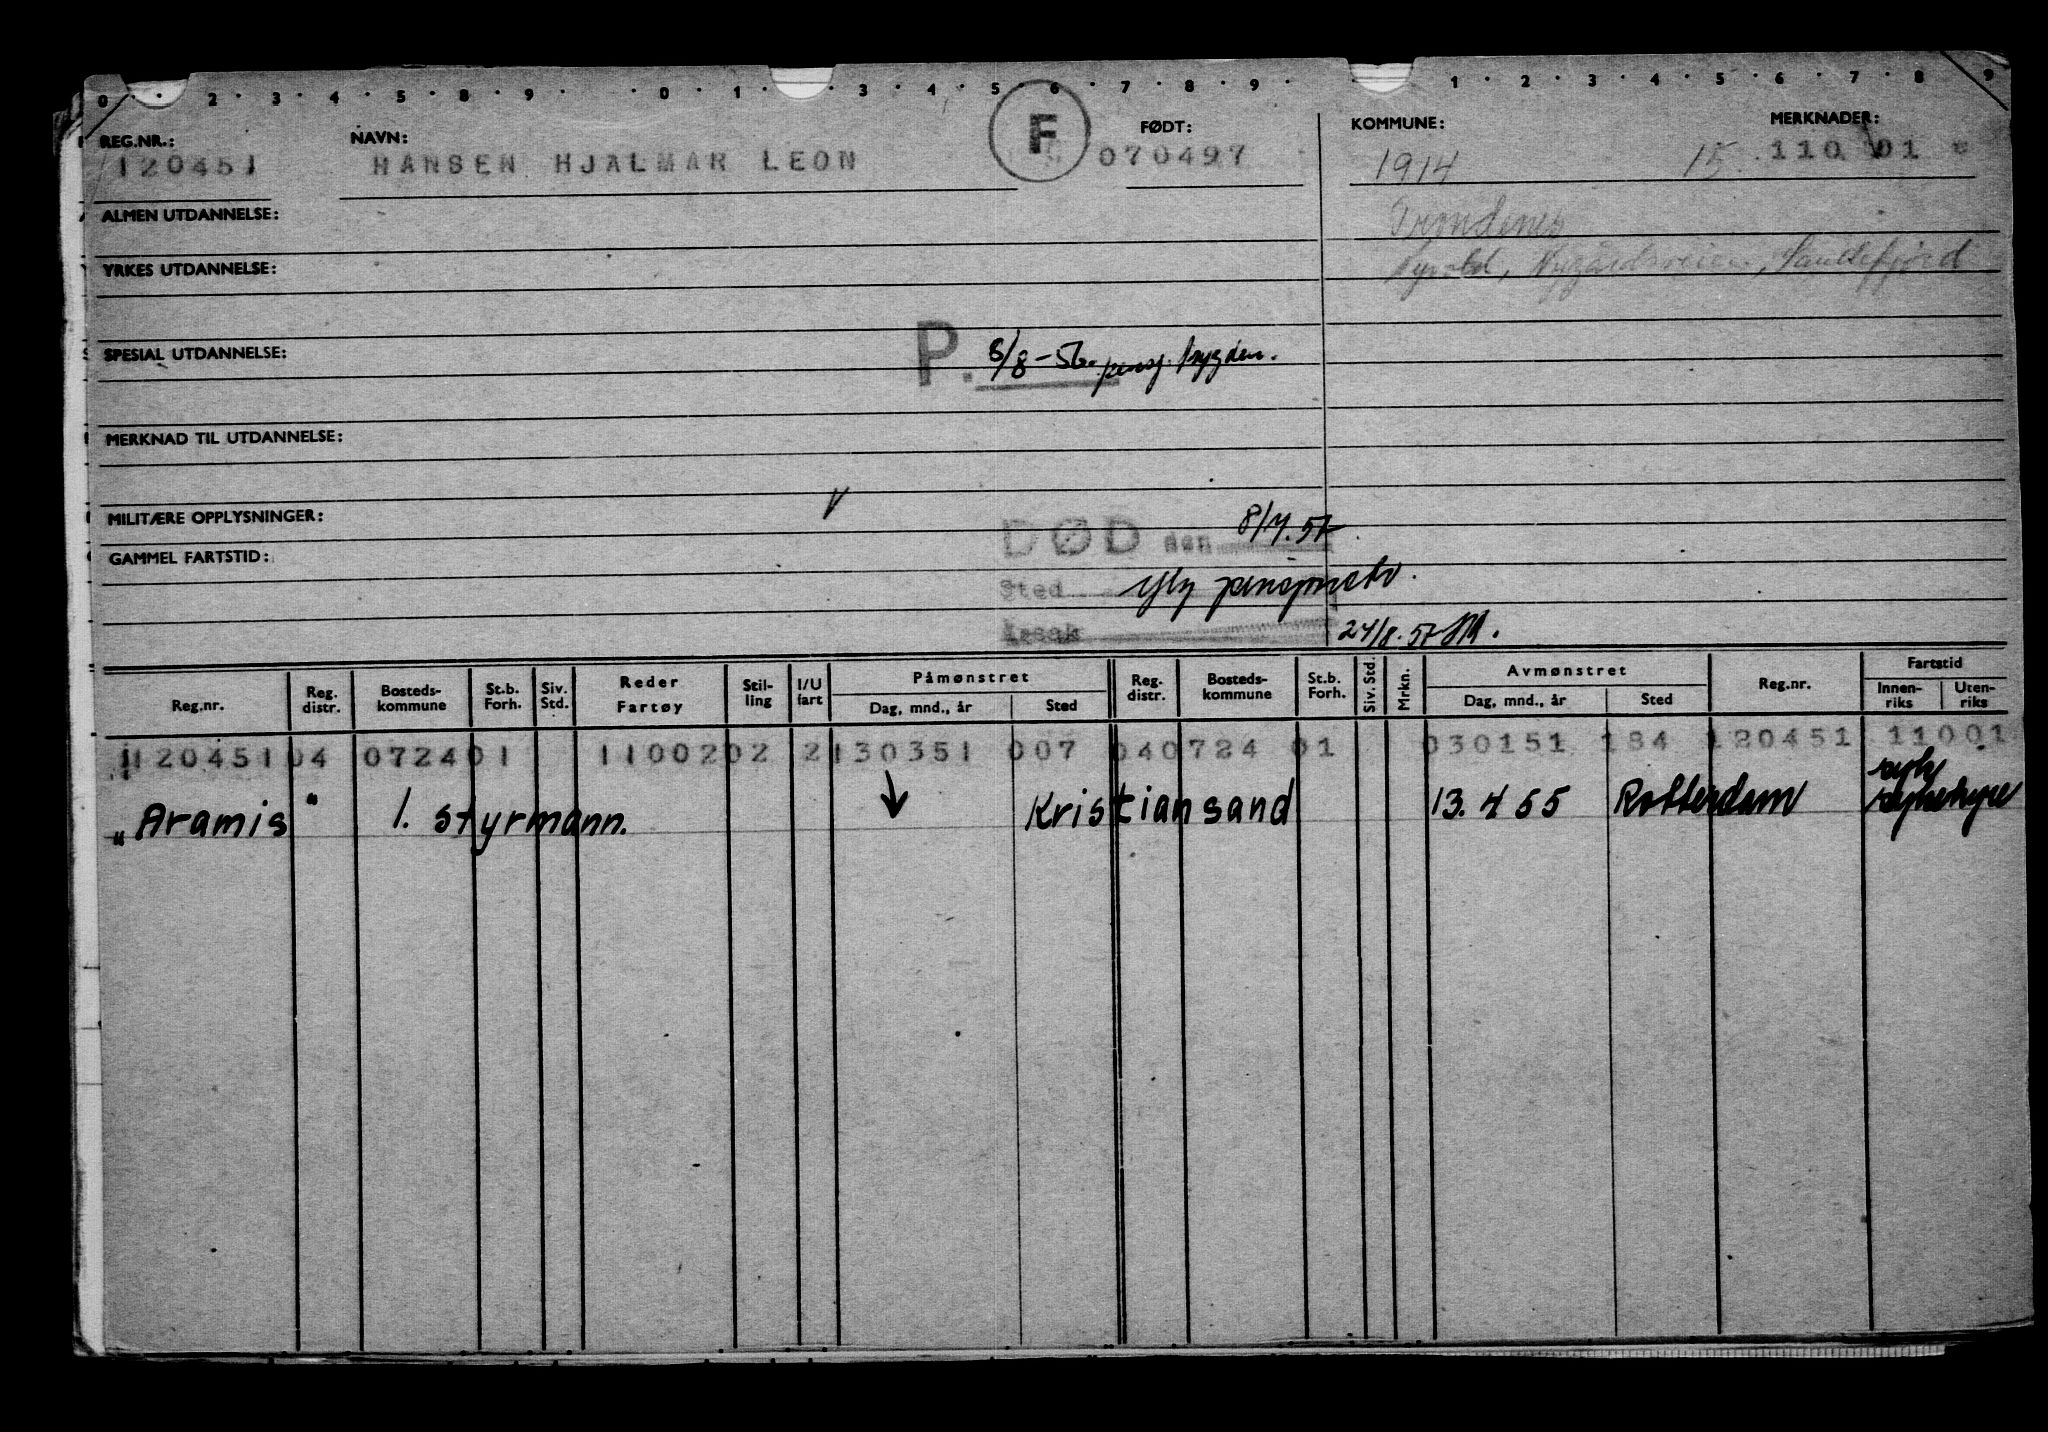 0 · · 2 · 3 · 4 · 5 · 8 · 9 · · 0 · 1 · · 3 · 4 · 5 · 6 · 7 · 8 · 9 · · 1 · 2 · 3 · 4 · 5 · 6 · 7 · 8 · 9
REG.NR.: NAVN: F FØDT: KOMMUNE: MERKNADER:
120451 HANSEN HJALMAR LEON 070497 1914 15. 110 01
ALMEN UTDANNELSE: Trondenes
YRKES UTDANNELSE: Nyvold, Nygårdsveien, Sandefjord
SPESIAL UTDANNELSE: P. 8/8-56. pensj. trygden.
MERKNAD TIL UTDANNELSE:
MILITÆRE OPPLYSNINGER: V DØD den 8/7.57
GAMMEL FARTSTID:
Sted pensjonsto.
Årsak 24/8.57
Reg.nr. Reg. distr. Bosteds-kommune St.b. Forh. Siv. Std. Reder Fartøy Stil-ling I/U fart Påmønstret Dag, mnd., år Sted Reg. distr. Bosteds-kommune St.b. Forh. Siv. Std. Mrkn. Avmønstret Dag, mnd., år Sted Reg.nr. Fartstid Innen-riks Uten-riks
120451 04 0724 01 11002 02 2 130351 007 04 0724 01 030151 184 120451 11001
"Aramis" 1. styrmann. Kristiansand 13.4 55 Rotterdam syk sykehyre